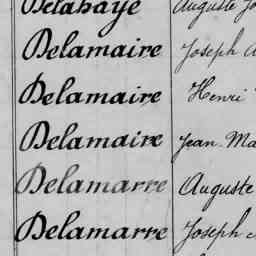 Delahaye Auguste
Delamaire Joseph
Delamaire Henri
Delamaire Jean Ma
Delamarre Auguste
Delamarre Joseph